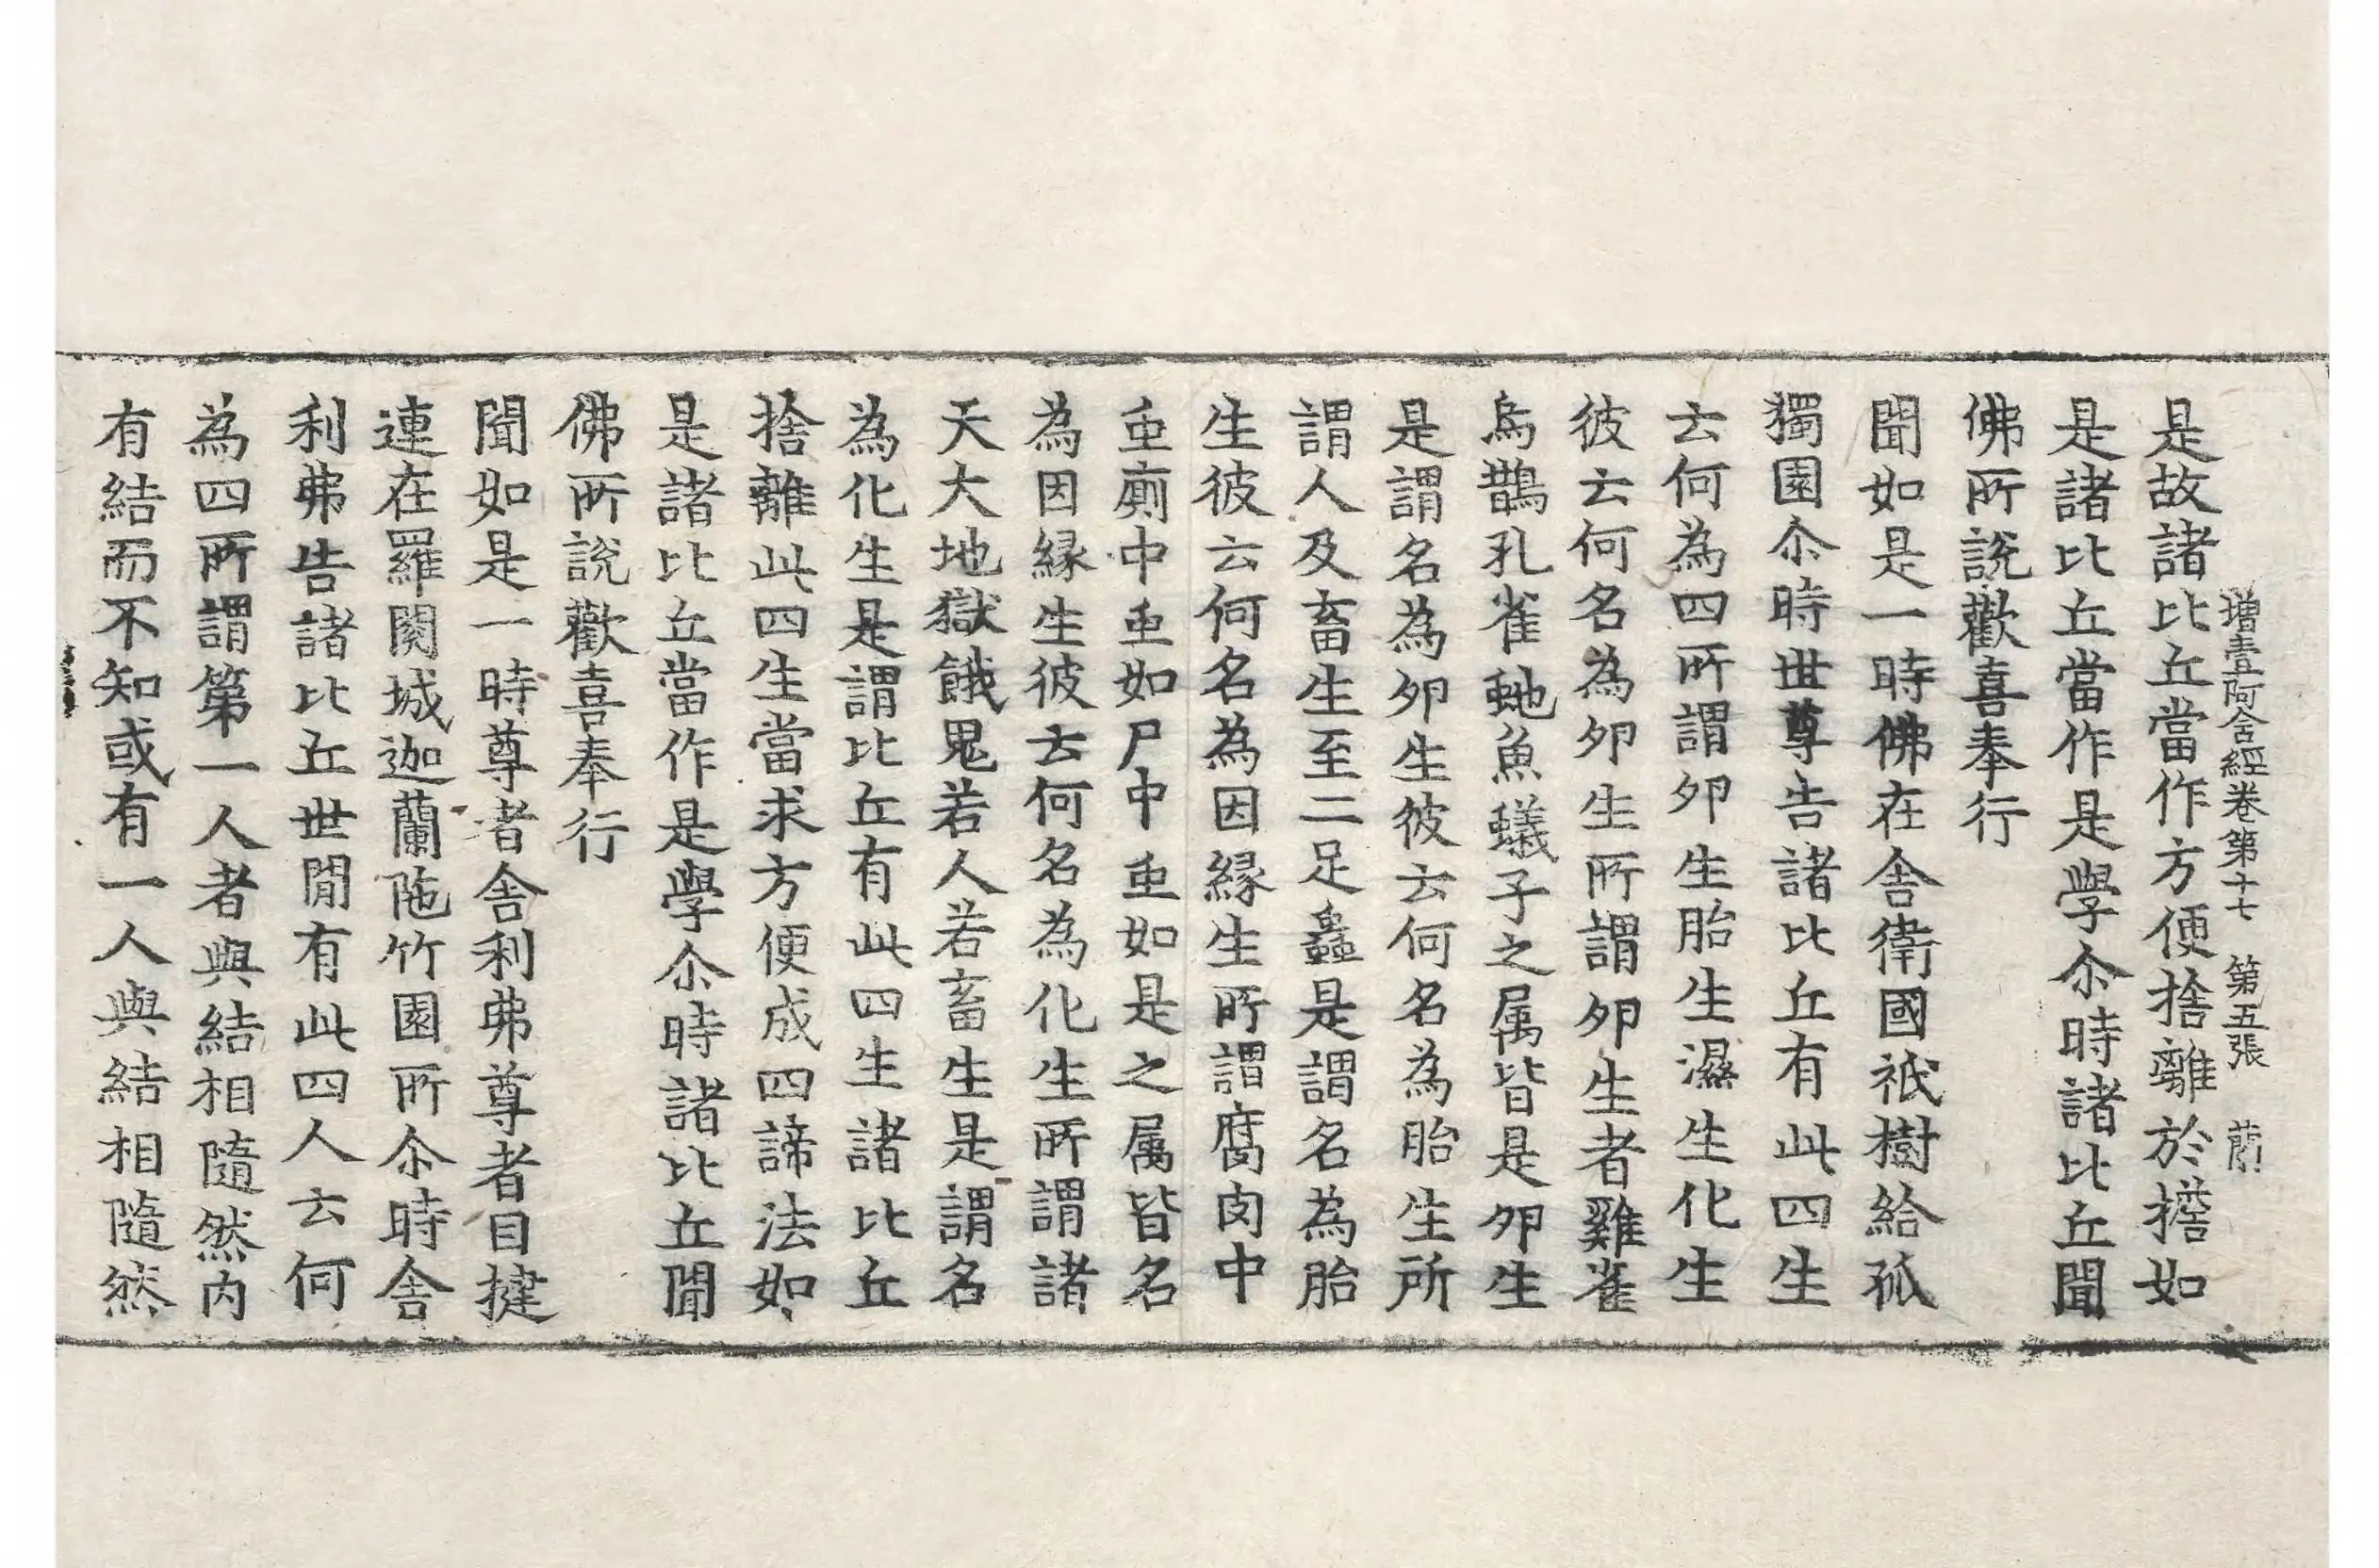 増壹阿含經卷第十七 第五張 蘭
是故諸比丘當作方便捨離於擔如
是諸比丘當作是學尒時諸比丘聞
佛所說歡喜奉行
聞如是一時佛在舍衛國祇樹給孤
獨園尒時世尊告諸比丘有此四生
云何為四所謂卵生胎生濕生化生
彼云何名為卵生所謂卵生者雞雀
烏鵲孔雀虵魚蟻子之属皆是卵生
是謂名為卵生彼云何名為胎生所
謂人及畜生至二足蟲是謂名為胎
生彼云何名為因緣生所謂腐肉中
虫廁中虫如尸中虫如是之属皆名
為因緣生彼云何名為化生所謂諸
天大地獄餓鬼若人若畜生是謂名
為化生是謂比丘有此四生諸比丘
捨離此四生當求方便成四諦法如
是諸比丘當作是學尒時諸比丘聞
佛所說歡喜奉行
聞如是一時尊者舍利弗尊者目揵
連在羅閱城迦蘭陁竹園所尒時舍
利弗告諸比丘世閒有此四人云何
為四所謂第一人者與結相隨然內
有結而不知或有一人與結相隨然